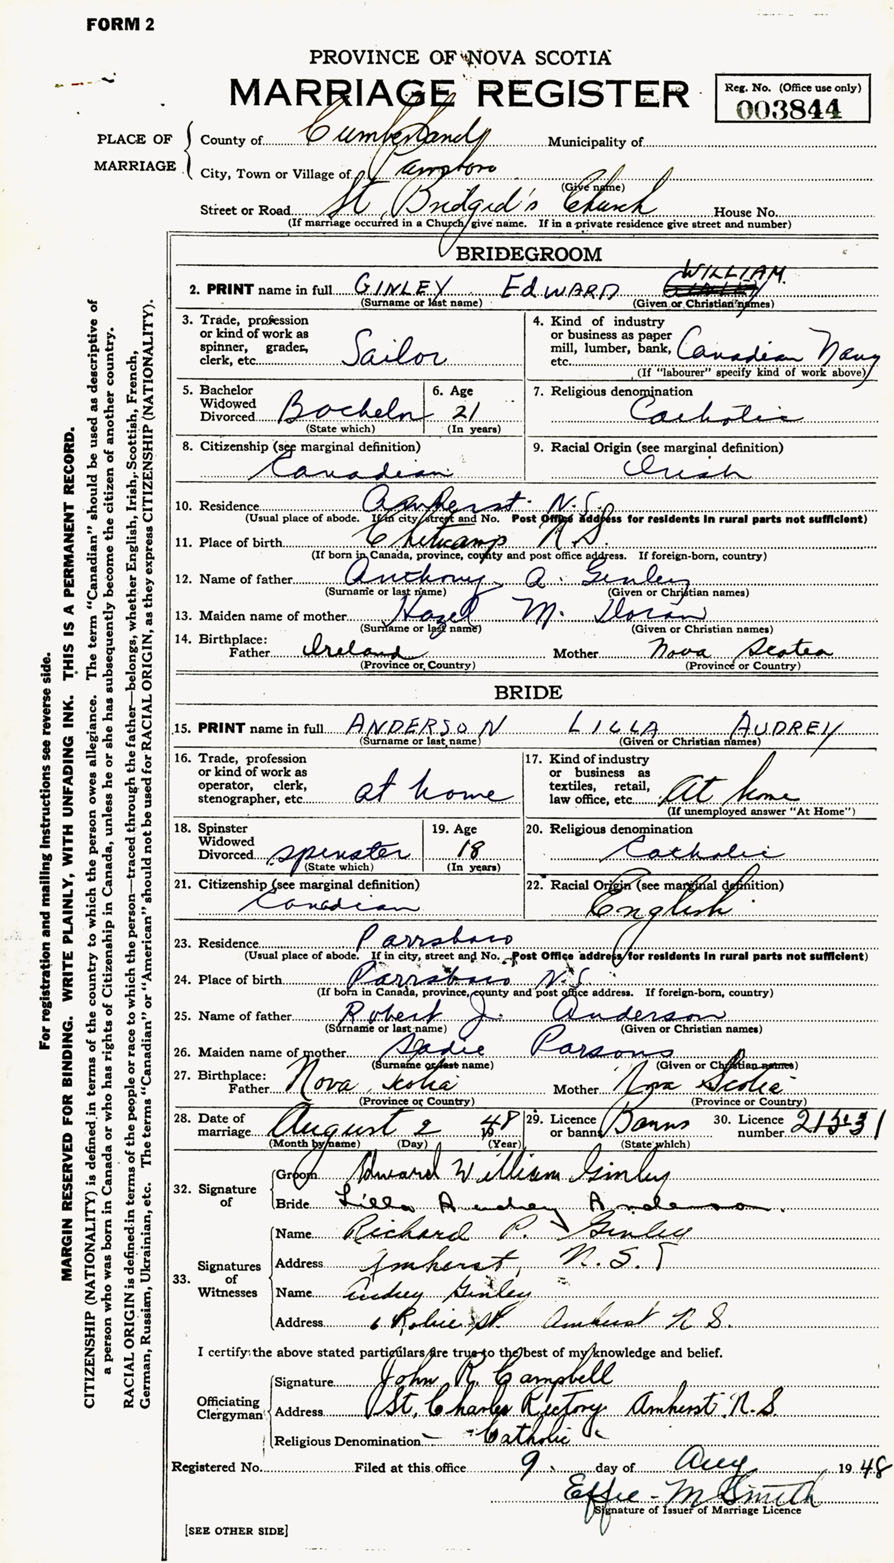 FORM 2
PROVINCE OF NOVA SCOTIA
MARRIAGE REGISTER
Reg. No. (Office use only)
003844
PLACE OF MARRIAGE
County of Cumberland Municipality of
City, Town or Village of
(Give name)
Street or Road St Bridgid's Church House No.
(If marriage occurred in a Church give name. If in a private residence give street and number)
BRIDEGROOM
WILLIAM
2. PRINT name in full GINLEY EDWARD
(Surname or last name) (Given or Christian names)
3. Trade, profession or kind of work as spinner, grader, clerk, etc. Sailor
4. Kind of industry or business as paper mill, lumber, bank, etc. Canadian Navy
(If "labourer" specify kind of work above)
5. Bachelor Widowed Divorced Bachelor
(State which)
6. Age 21
(In years)
7. Religious denomination
Catholic
8. Citizenship (see marginal definition)
Canadian
9. Racial Origin (see marginal definition)
Irish
10. Residence Amherst N.S.
(Usual place of abode. If in city, street and No. Post Office address for residents in rural parts not sufficient)
11. Place of birth Cheticamp N.S.
(If born in Canada, province, county and post office address. If foreign-born, country)
12. Name of father Anthony A. Ginley
(Surname or last name) (Given or Christian names)
13. Maiden name of mother Hazel M. Doran
(Surname or last name) (Given or Christian names)
14. Birthplace:
Father Ireland Mother Nova Scotia
(Province or Country) (Province or Country)
BRIDE
15. PRINT name in full ANDERSON LILLA AUDREY
(Surname or last name) (Given or Christian names)
16. Trade, profession or kind of work as operator, clerk, stenographer, etc. at home
17. Kind of industry or business as textiles, retail, law office, etc. At home
(If unemployed answer "At Home")
18. Spinster Widowed Divorced spinster
(State which)
19. Age 18
(In years)
20. Religious denomination
Catholic
21. Citizenship (see marginal definition)
Canadian
22. Racial Origin (see marginal definition)
English
23. Residence Parrsboro
(Usual place of abode. If in city, street and No. Post Office address for residents in rural parts not sufficient)
24. Place of birth Parrsboro N.S.
(If born in Canada, province, county and post office address. If foreign-born, country)
25. Name of father Robert J. Anderson
(Surname or last name) (Given or Christian names)
26. Maiden name of mother Sadie Parsons
(Surname or last name) (Given or Christian names)
27. Birthplace:
Father Nova Scotia Mother Nova Scotia
(Province or Country) (Province or Country)
28. Date of marriage August 2 48
(Month by name) (Day) (Year)
29. Licence or banns Banns
(State which)
30. Licence number
32. Signature of
Groom Edward William Ginley
Bride Lilla Audrey Anderson.
33. Signatures of Witnesses
Name Richard P. Ginley
Address Amherst, N.S.
Name Audrey Ginley
Address 6 Robie St. Amherst N.S.
I certify the above stated particulars are true to the best of my knowledge and belief.
Officiating Clergyman
Signature John R. Campbell
Address St. Charles Rectory Amherst, N.S.
Religious Denomination Catholic
Registered No. Filed at this office 9 day of Aug 1948
Effie M Smith
Signature of Issuer of Marriage Licence
[SEE OTHER SIDE]
For registration and mailing instructions see reverse side.
MARGIN RESERVED FOR BINDING. WRITE PLAINLY, WITH UNFADING INK. THIS IS A PERMANENT RECORD.
CITIZENSHIP (NATIONALITY) is defined in terms of the country to which the person owes allegiance. The term "Canadian" should be used as descriptive of
a person who was born in Canada or who has rights of Citizenship in Canada, unless he or she has subsequently become the citizen of another country.
RACIAL ORIGIN is defined in terms of the people or race to which the person—traced through the father—belongs, whether English, Irish, Scottish, French,
German, Russian, Ukrainian, etc. The terms "Canadian" or "American" should not be used for RACIAL ORIGIN, as they express CITIZENSHIP (NATIONALITY).